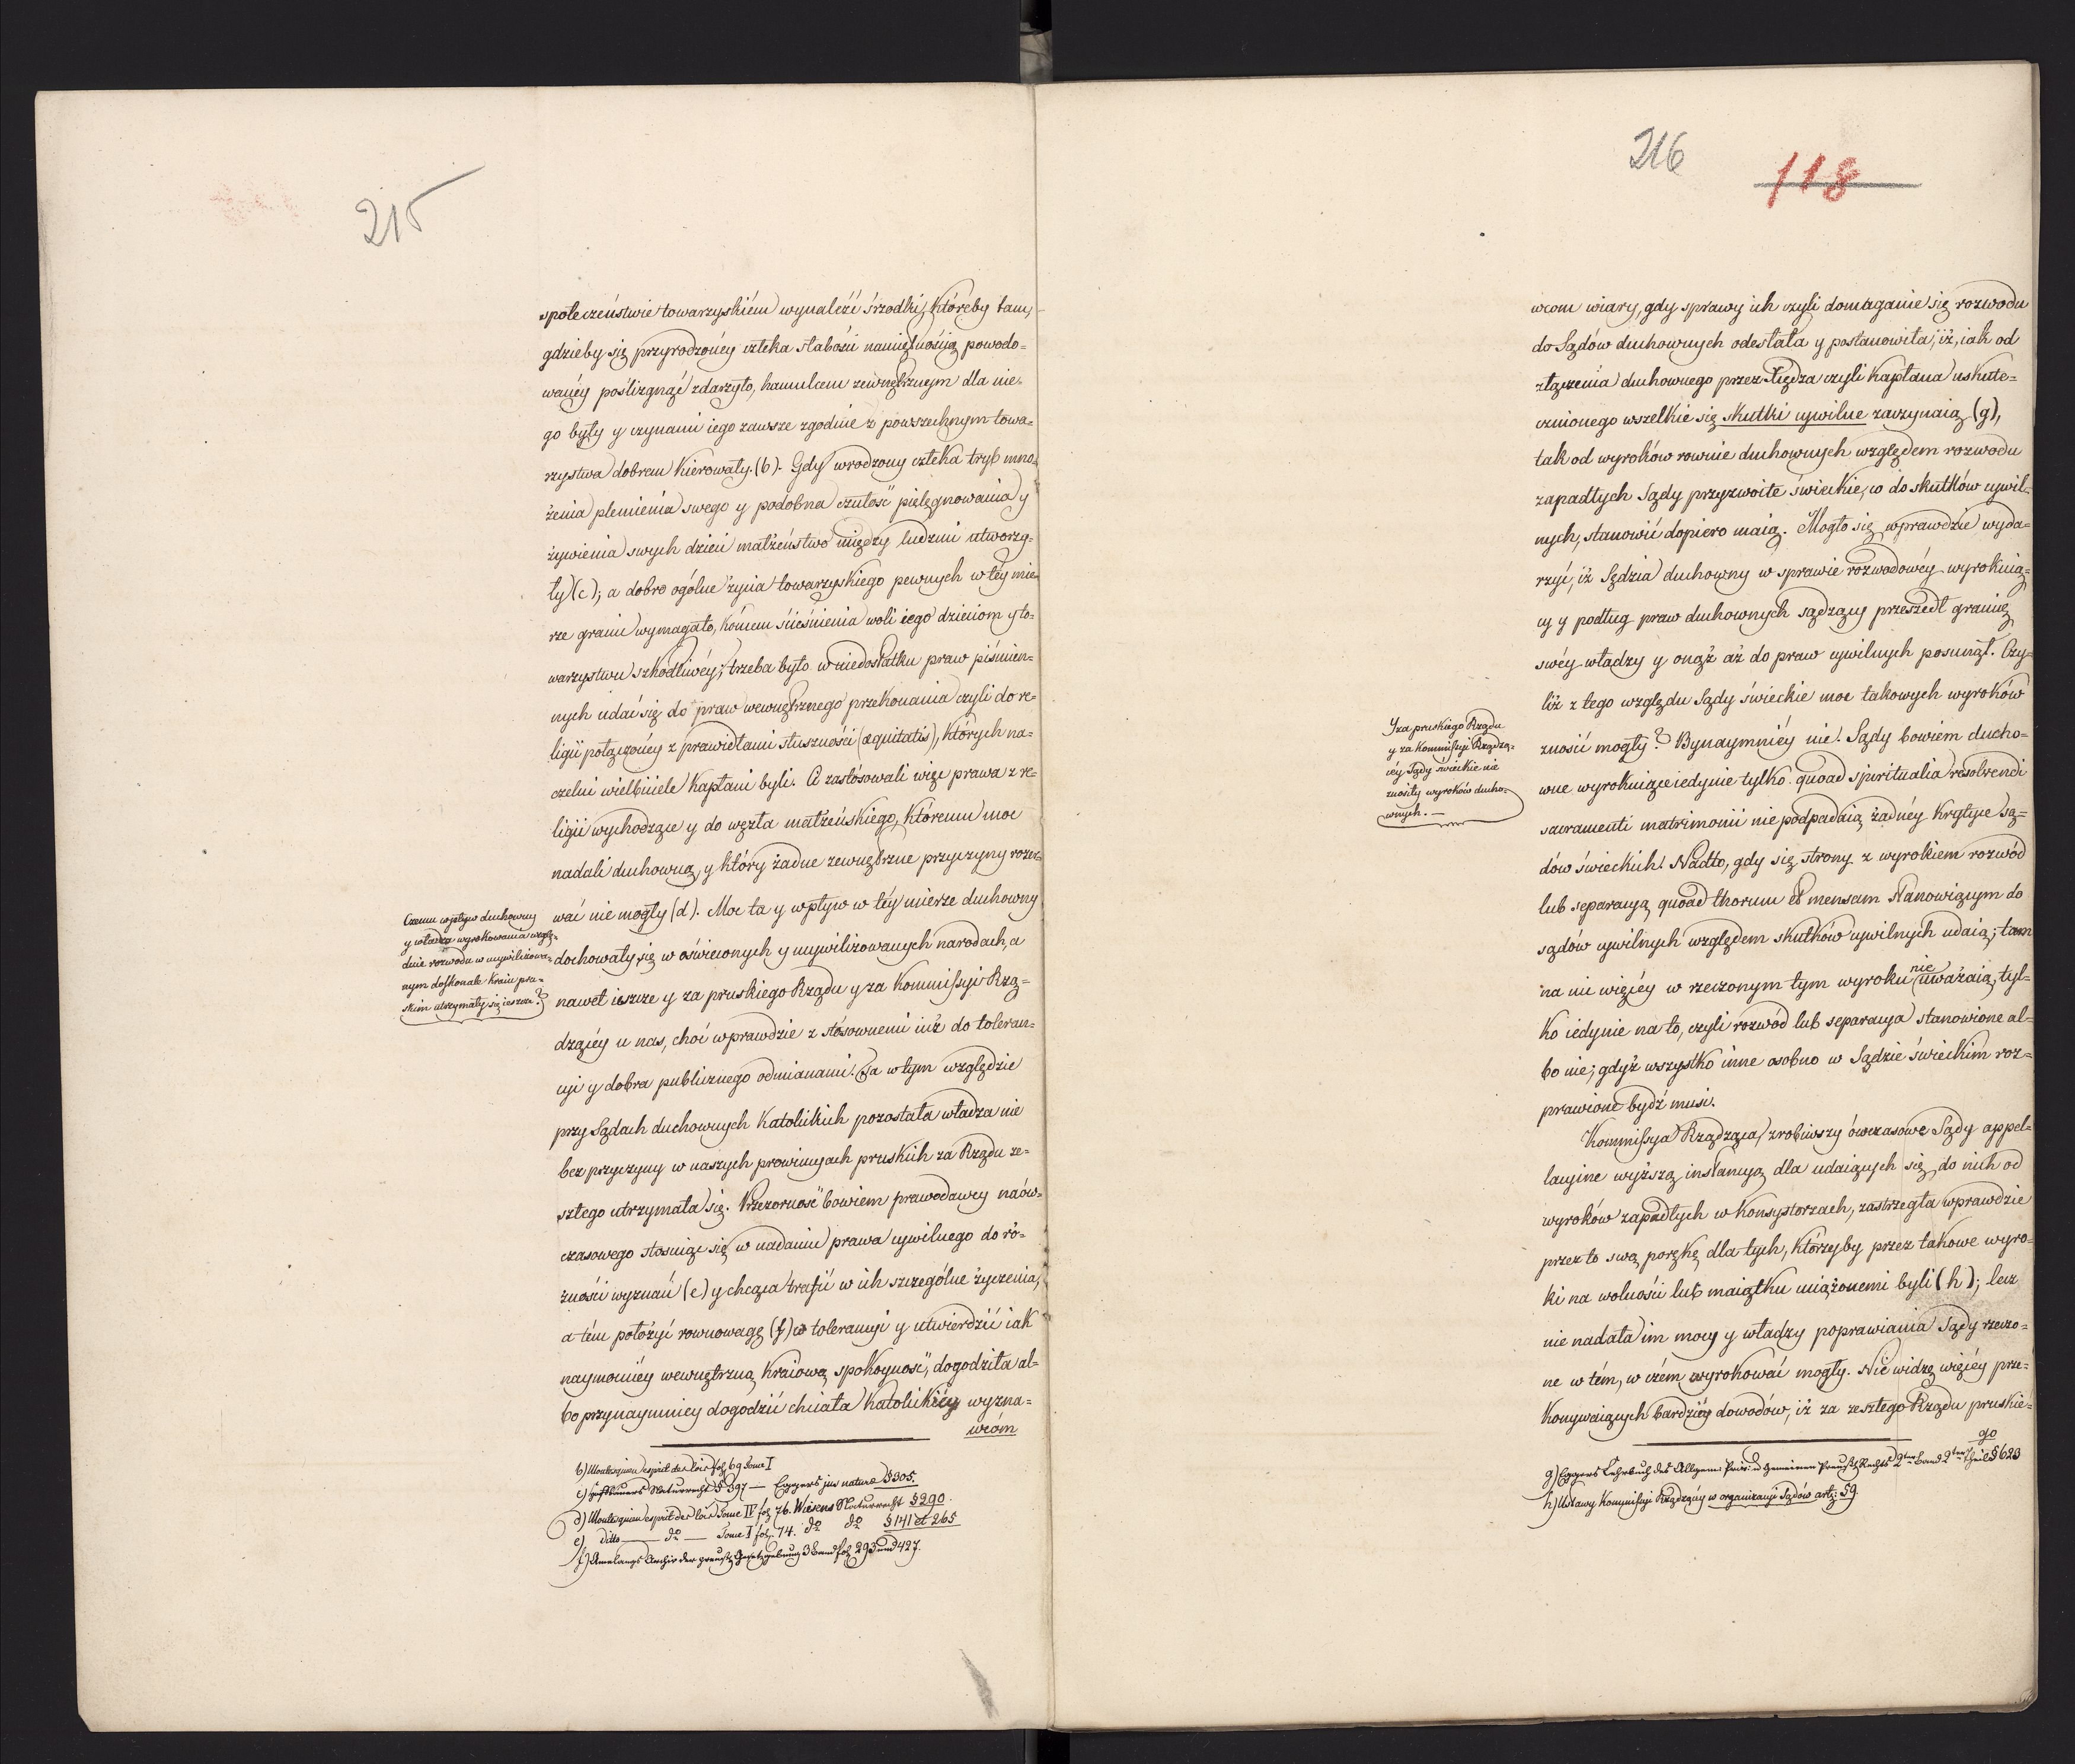 215
społeczeństwie towarzyskiém wynaleźć śrzodki, któreby tam,
gdzieby się przyrodzonéy człeka słabości namiętnością powodo-
wanéy pośliznąć zdarzyło, hamulcem zewnętrznym dla nie-
go były y czynami iego zawsze zgodnie z powszechnym towa-
rzystwa dobrem kierowały. (b). Gdy wrodzony człeka tryb mno-
żenia plemienia swego y podobna czułość pielęgnowania y
żywienia swych dzieci małżeństwo między ludzmi utworzy-
ły (c); a dobro ogólne życia towarzyskiego pewnych w téy mie-
rze granic wymagało, końcem ścieśnienia woli iego dzieciom y to-
warzystwu szkodliwéy; trzeba było w niedostatku praw piśmien-
nych udać się do praw wewnętrznego przekonania czyli do re-
ligii połączonéy z prawidłami słuszności (æquitatis), których na-
czelni wielbiciele Kapłani byli. Ci zastósowali więc prawa z re-
ligii wychodzące y do węzła małżeńskiego, któremu moc
nadali duchowną, y który żadne zewnętrzne przyczyny rozer-
wać nie mogły (d). Moc ta y wpływ w téy mierze duchowny
dochowały się w oświeconych y ucywilizowanych narodach, a
nawet ieszcze y za pruskiego Rządu y za Kommissyi Rzą-
dzącéy u nas, choć wprawdzie z stósownemi iuż do toleran-
cyi y dobra publicznego odmianami. Ta w tym względzie
przy Sądach duchownych Katolickich pozostała władza nie
bez przyczyny w naszych prowincyach pruskich za Rządu ze-
szłego utrzymała się. Przezorność bowiem prawodawcy naów-
czasowego stosuiąc się w nadaniu prawa cywilnego do ró-
żności wyznań (e) y chcąca trafić w ich szczególne życzenia,
a tém położyć rownowagę (f) w tolerancyi y utwierdzić iak
naymocniéy wewnętrzną kraiową spokoyność, dogodziła al-
bo przynaymniey dogodzić chciała Katolickiéy wyzna-
wcóm
Czemu wpływ duchowny
y władza wyrokowania wzglę-
dnie rozwodu w ucywilizowa-
nym doskonale kraiu pru-
skim utrzymały się ieszcze?
b) Montesquieu esprit des lois fol. 69 Tome I
c) Hufbauers Naturrecht § 397 — Eggers jus naturæ § 305.
d) Montesquieu esprit des lois Tome IV fol. 76. Wiesens Naturrecht § 290.
e) ditto — do — Tome I fol. 74. do do § 141 et 265
f) Amelangs Archiv der preuß. Gesetzgebung 3 Band fol. 293 und 427.
216
118
wcom wiary, gdy sprawy ich czyli domaganie się rozwodu
do Sądów duchownych odesłała y postanowiła, iż, iak od
złączenia duchownego przez Xiędza czyli Kapłana uskute-
cznionego wszelkie się skutki cywilne zaczynaią (g),
tak od wyroków rownie duchownych względem rozwodu
zapadłych Sądy przyzwoite świeckie, co do skutków cywil-
nych, stanowić dopiero maią. Mogło się wprawdzie wyda-
rzyć, iż Sędzia duchowny w sprawie rozwodowéy wyrokuią-
cy y podług praw duchownych sądzący przeszedł granicę
swéy władzy y onąż aż do praw cywilnych posunął. Czy-
liż z tego względu Sądy świeckie moc takowych wyroków
znosić mogły? Bynaymniéy nie! Sądy bowiem ducho-
wne wyrokuiące iedynie tylko quoad spiritualia resolvendi
sacramenti matrimonii nie podpadaią żadnéy krytyce Są-
dów świeckich! Nadto, gdy się strony z wyrokiem rozwód
lub separacyą quoad thorum et mensam stanowiącym do
sądów cywilnych względem skutków cywilnych udaią; tam
na nic więcéy w rzeczonym tym wyroku nie uważaią, tyl-
ko iedynie na to, czyli rozwód lub separacya stanowione al-
bo nie; gdyż wszystko inne osobno w Sądzie świeckim roz-
prawione bydź musi.
Kommissya Rządząca, zrobiwszy ówczasowe Sądy appel-
lacyine wyższą instancyą dla udaiących się do nich od
wyroków zapadłych w Konsystorzach, zastrzegła wprawdzie
przez to swą porękę dla tych, którzyby przez takowe wyro-
ki na wolności lub maiątku uciążonemi byli (h); lecz
nie nadała im mocy y władzy poprawiania Sądy rzeczo-
ne w tém, w czém wyrokować mogły. Nie widzę więcéy prze-
konywaiących bardziéy dowodów, iż za zeszłego Rządu pruskié-
go
Y za pruskiego Rządu
y za Kommissyi Rządzą-
céy Sądy świeckie nie
znosiły wyroków ducho-
wnych. —
g) Eggers Lehrbuch des Allgem: Priv: u Gemeinen Preuß. Rechts 2ter Band 2ter Theil § 623
h) Ustawy Kommissyi Rządzącéy w organizacyi Sądów art: 59.